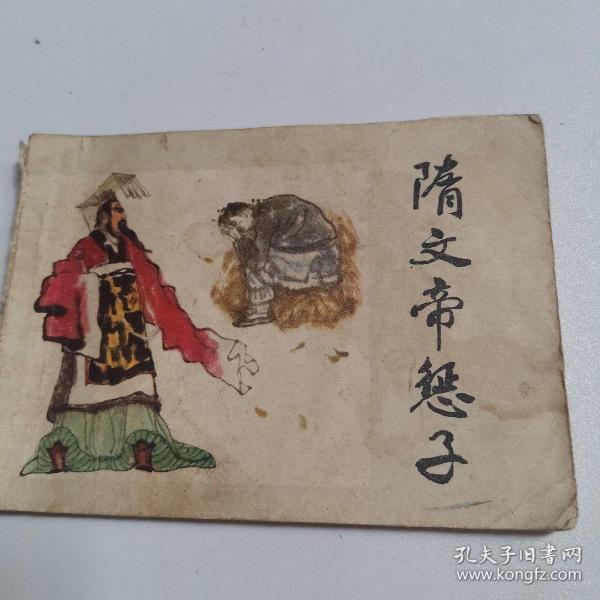 隋文帝惩子
孔夫子旧書网
www.kongfz.com